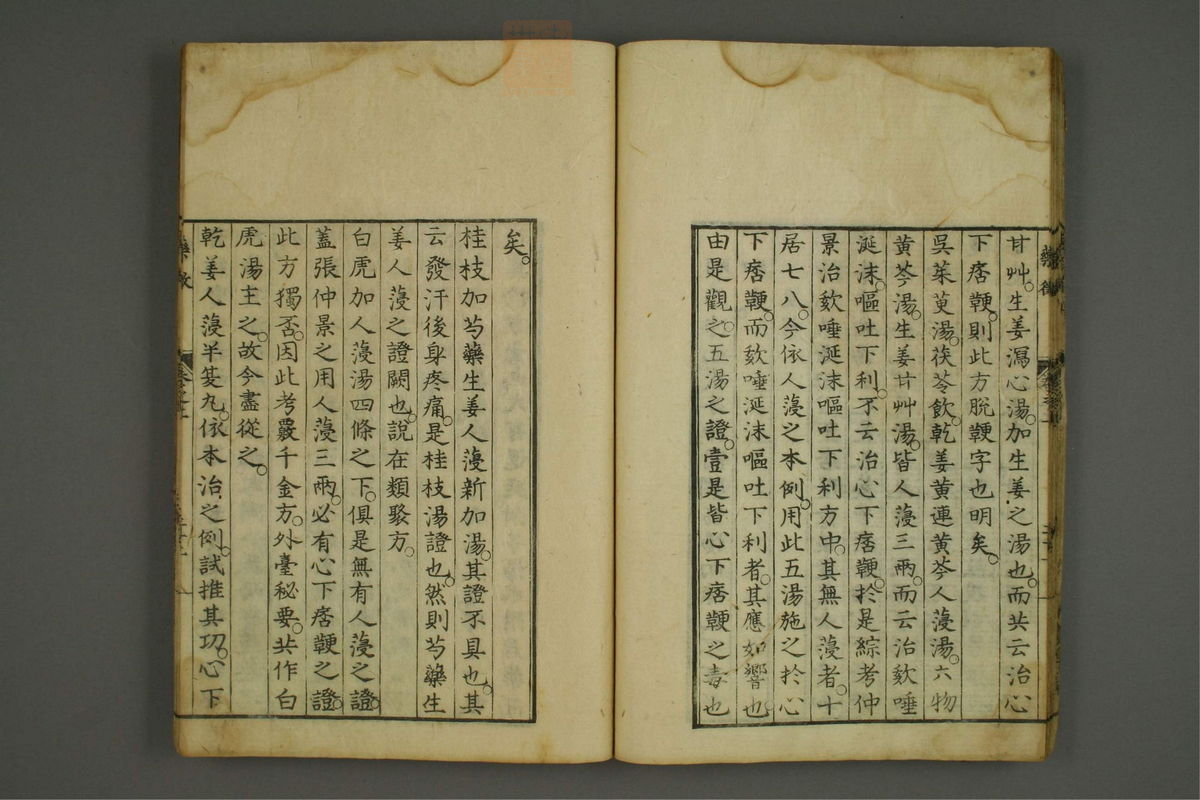 甘艸。生姜瀉心湯。加生姜之湯也。而共云治心
下痞鞕。則此方脫鞕字也明矣。
吳茱萸湯。茯苓飲。乾姜黃連黃芩人蓡湯。六物
黃芩湯。生姜甘艸湯。皆人蓡三兩。而云治欬唾
涎沫。嘔吐下利。不云治心下痞鞕。於是綜考仲
景治欬唾涎沫嘔吐下利方中。其無人蓡者。十
居七八。今依人蓡之本例。用此五湯施之於心
下痞鞕。而欬唾涎沫嘔吐下利者。其應如響也。
由是觀之。五湯之證。壹是皆心下痞鞕之毒也
矣。
桂枝加芍藥生姜人蓡新加湯。其證不具也。其
云發汗後身疼痛。是桂枝湯證也。然則芍藥生
姜人蓡之證闕也。說在類聚方。
白虎加人蓡湯四條之下。俱是無有人蓡之證。
蓋張仲景之用人蓡三兩。必有心下痞鞕之證。
此方獨否。因此考覈千金方。外臺秘要。共作白
虎湯主之。故今盡從之。
乾姜人蓡半夏丸。依本治之例。試推其功。心下